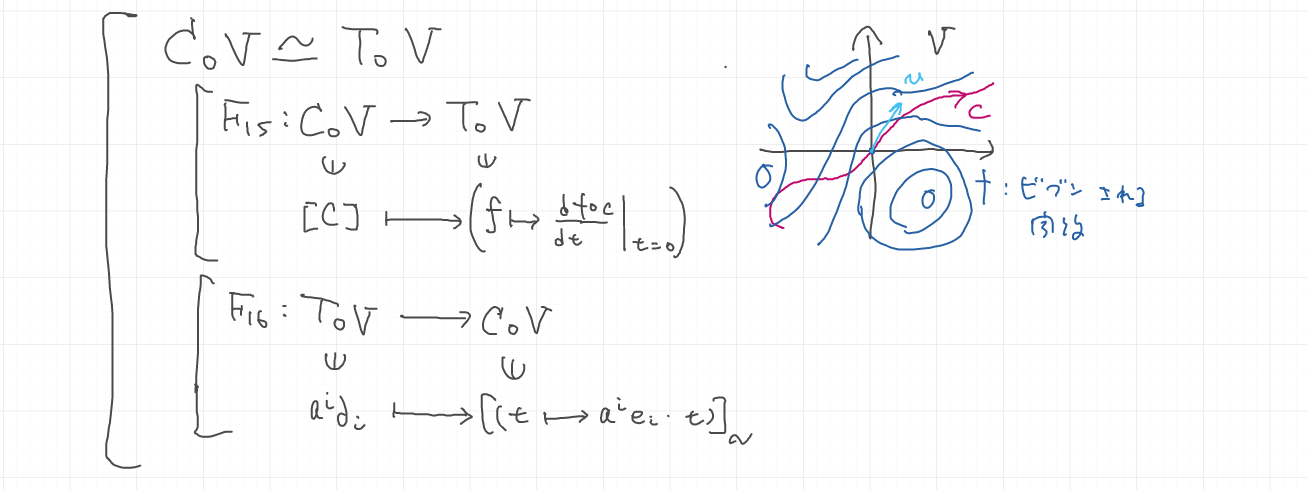 C₀V ≃ T₀V
F₁₅ : C₀V → T₀V
[C] ↦ (f ↦ df∘c/dt |t=0)
F₁₆ : T₀V → C₀V
aⁱ∂ᵢ ↦ [(t ↦ aⁱeᵢ·t)]~
V
u
C
0
0
f : ビブン される